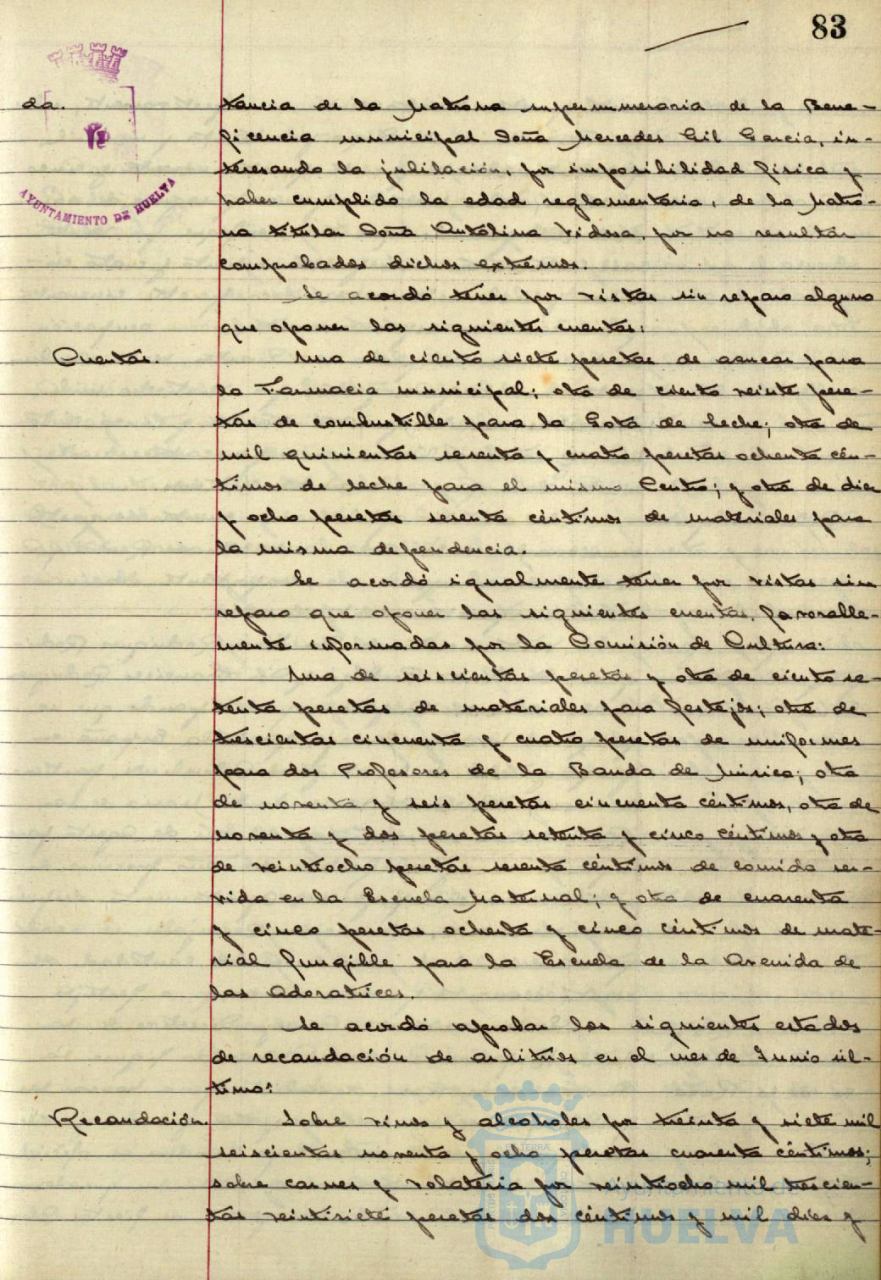 83
AYUNTAMIENTO DE HUELVA
da.
tancia de la Matrona supernumeraria de la Bene-
ficencia municipal Doña Mercedes Gil Garcia, in-
teresando la jubilación, por imposibilidad física y
haber cumplido la edad reglamentaria, de la Matro-
na titular Doña Antolina Vidosa, por no resultar
comprobados dichos extremos.
Se acordó tener por vistas sin reparo alguno
que oponer las siguientes cuentas:
Cuentas.
Una de ciento siete pesetas de azucar para
la Farmacia municipal; otra de ciento veinte pese-
tas de combustible para la Gota de leche; otra de
mil quinientas sesenta y cuatro pesetas ochenta cén-
timos de leche para el mismo Centro; y otra de diez
y ocho pesetas sesenta céntimos de materiales para
la misma dependencia.
Se acordó igualmente tener por vistas sin
reparo que oponer las siguientes cuentas, favorable-
mente informadas por la Comisión de Cultura:
Una de seiscientas pesetas y otra de ciento se-
tenta pesetas de materiales para festejos; otra de
trescientas cincuenta y cuatro pesetas de uniformes
para dos Profesores de la Banda de Música; otra
de noventa y seis pesetas cincuenta céntimos, otra de
noventa y dos pesetas setenta y cinco céntimos y otra
de veintiocho pesetas sesenta céntimos de comida ser-
vida en la Escuela Maternal; y otra de cuarenta
y cinco pesetas ochenta y cinco céntimos de mate-
rial fungible para la Escuela de la Avenida de
las Adoratrices.
Se acordó aprobar los siguientes estados
de recaudación de arbitrios en el mes de Junio úl-
timo:
Recaudación.
Sobre vinos y alcoholes por treinta y siete mil
seiscientas noventa y ocho pesetas cuarenta céntimos;
sobre carnes y volatería por veintiocho mil trescien-
tas veintisiete pesetas dos céntimos y mil diez y
HUELVA